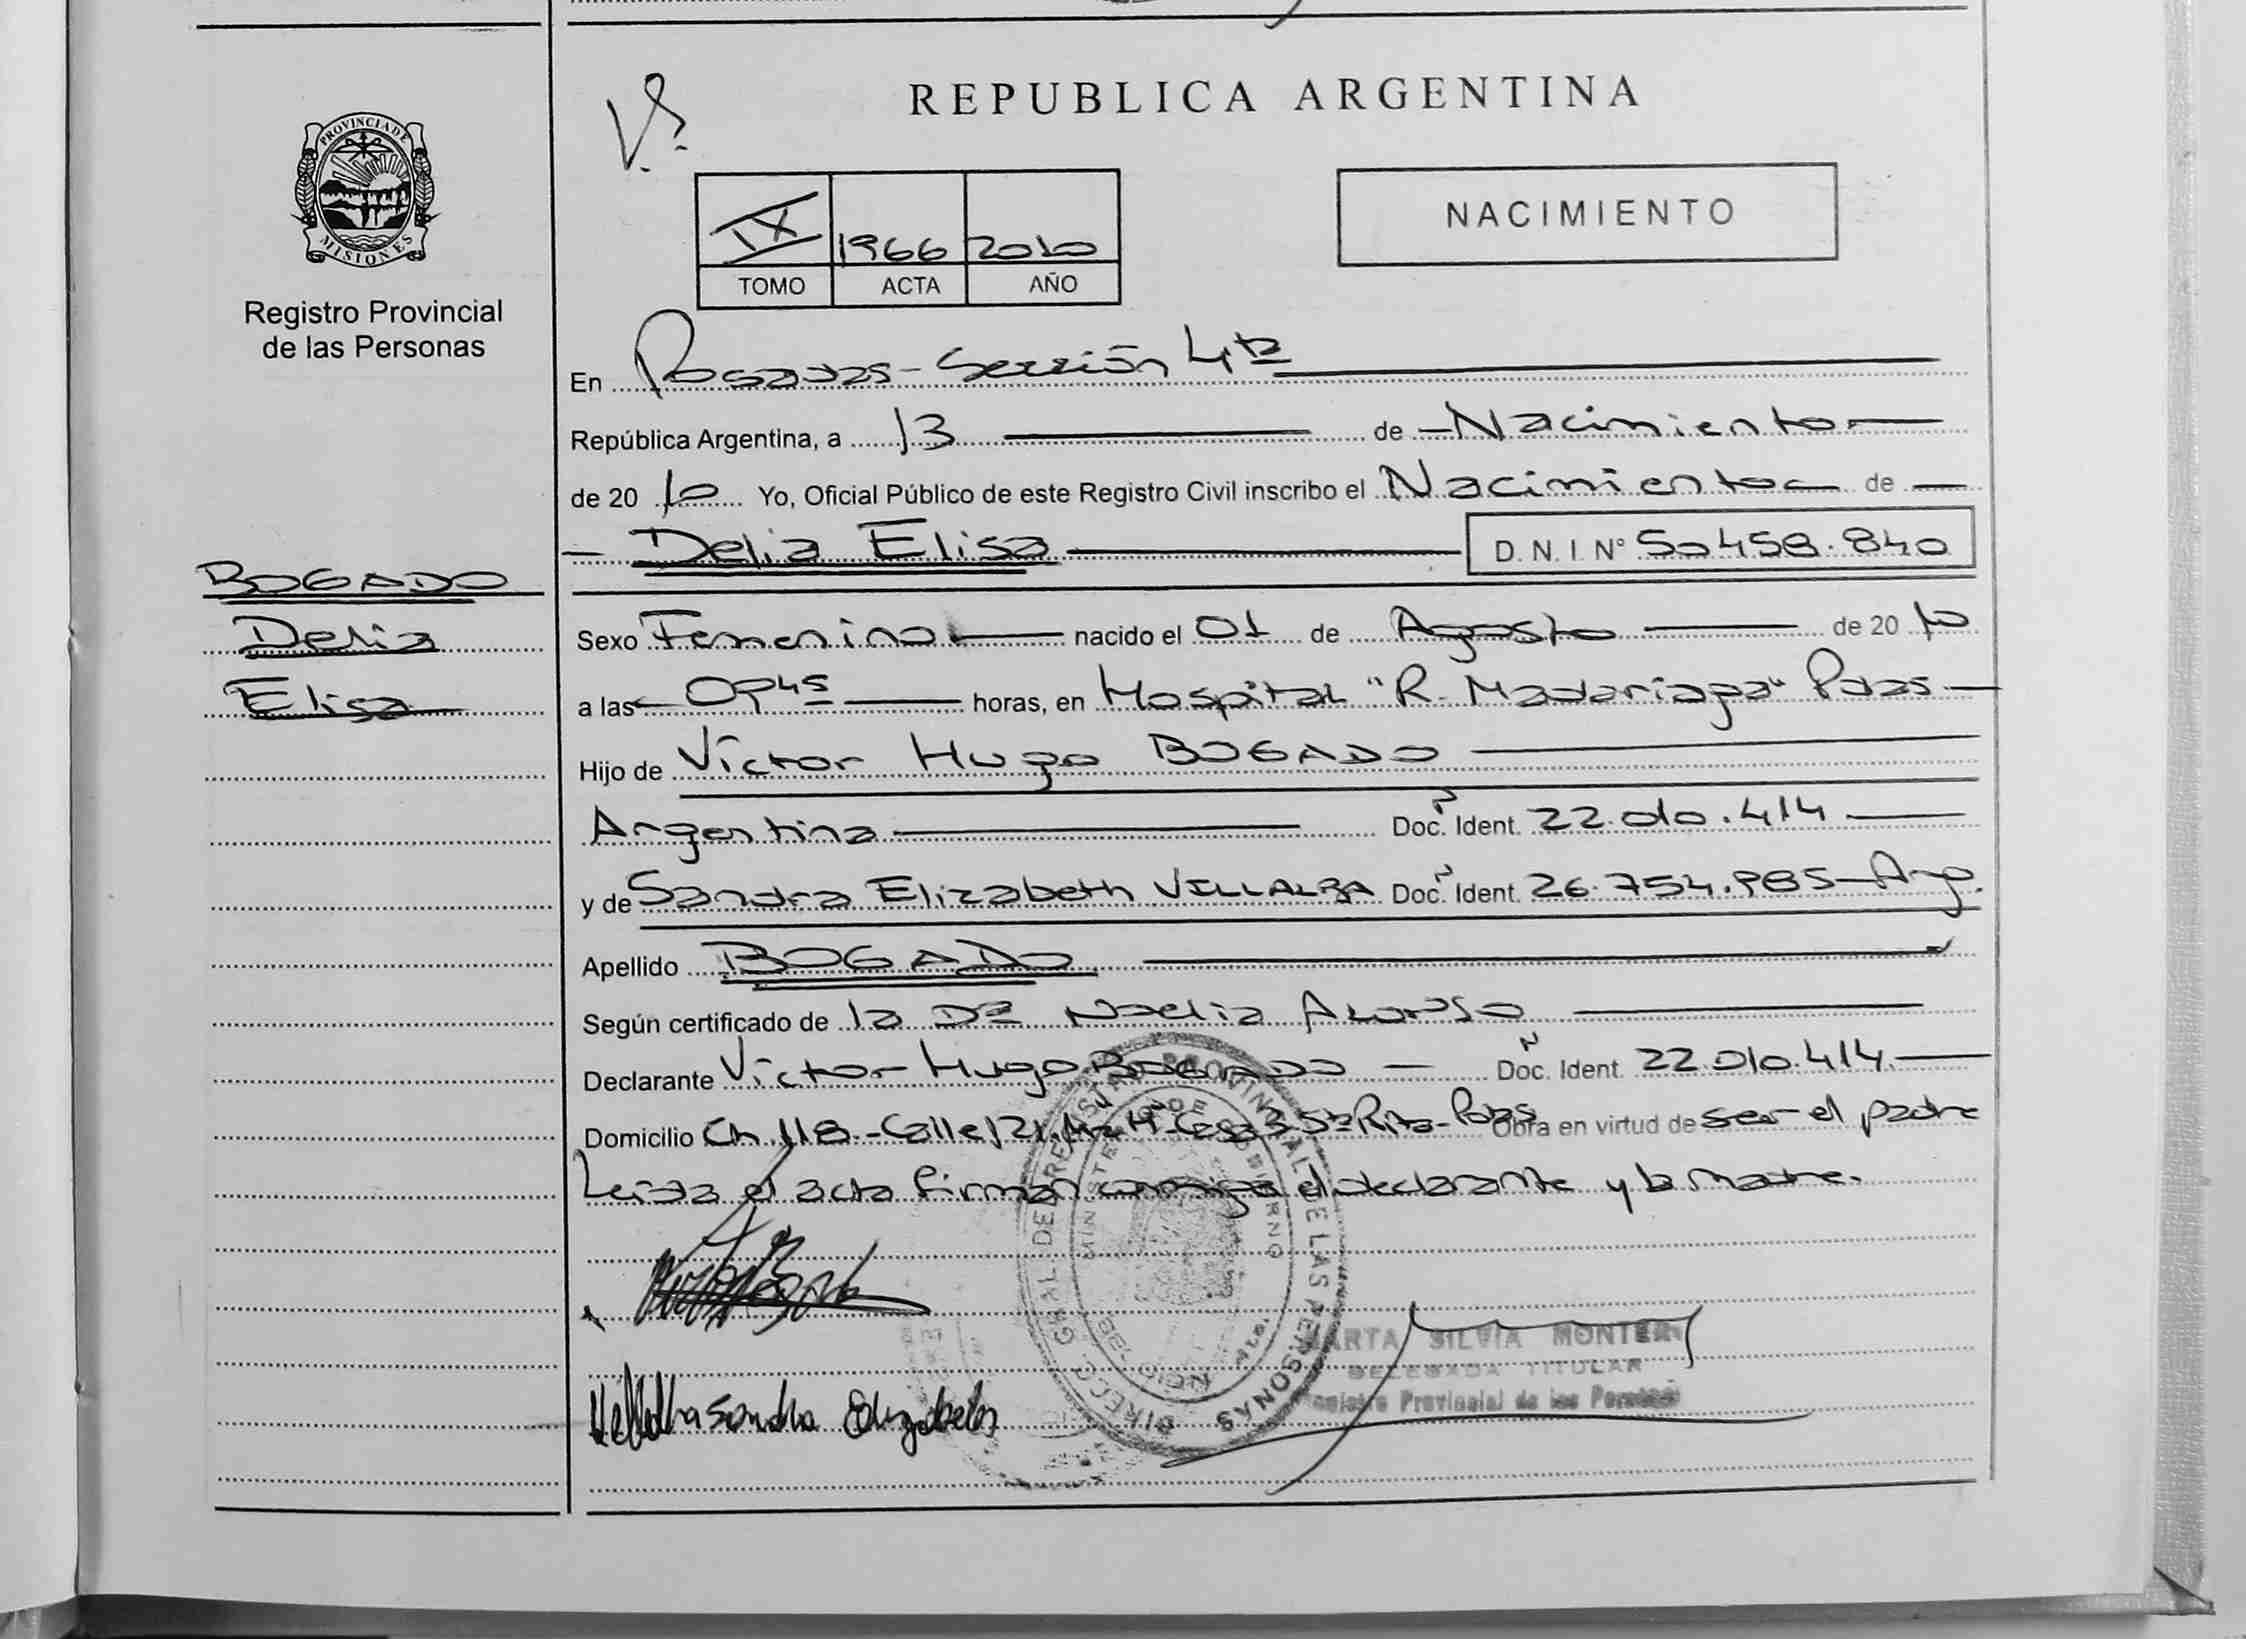 PROVINCIA DE
MISIONES
Registro Provincial
de las Personas
BOGADO
Delia
Elisa
REPUBLICA ARGENTINA
NACIMIENTO
IX 1966 2010
TOMO ACTA AÑO
En Posadas - Sección 4ta
República Argentina, a 13 de Nacimiento
de 20 10 Yo, Oficial Público de este Registro Civil inscribo el Nacimiento de
Delia Elisa D. N. I. N° 50.458.840
Sexo Femenino nacido el 01 de Agosto de 20 10
a las 09 45 horas, en Hospital "R. Madariaga" Pdas
Hijo de Víctor Hugo BOGADO
Argentina Doc. Ident. 22.010.414
y de Sandra Elizabeth VILLALBA Doc. Ident. 26.754.985 - Arg.
Apellido BOGADO
Según certificado de la Dra Noelia Alonso
Declarante Víctor Hugo BOGADO Doc. Ident. 22.010.414.
Domicilio Ch. 118 - Calle 121, Mz "H" Casa 3 Sta Rita - Pdas Obra en virtud de ser el padre
Leida el acta firman conmigo el declarante y la madre.
DIRECC. GRAL. DEL REGISTRO PROVINCIAL DE LAS PERSONAS
MINISTERIO DE GOBIERNO
SILVIA MONTER
DELEGADA TITULAR
Registro Provincial de las Personas
Villalba Sandra Elizabeth